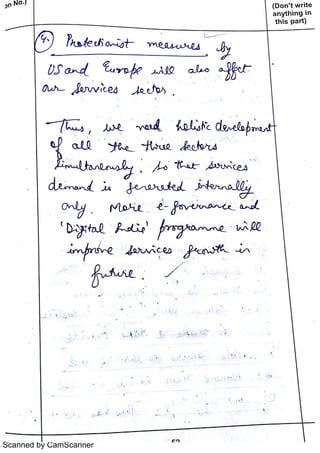 on No.)
(Don't write
anything in
this part)
4. Protectionist measures by
US and Europe will also affect
our services sector.
Thus, we need holistic development
of all the three sectors
simultaneously, so that services
demand is generated internally
only. More e-governance and
'Digital India' programme will
improve services growth in
future.
Scanned by CamScanner